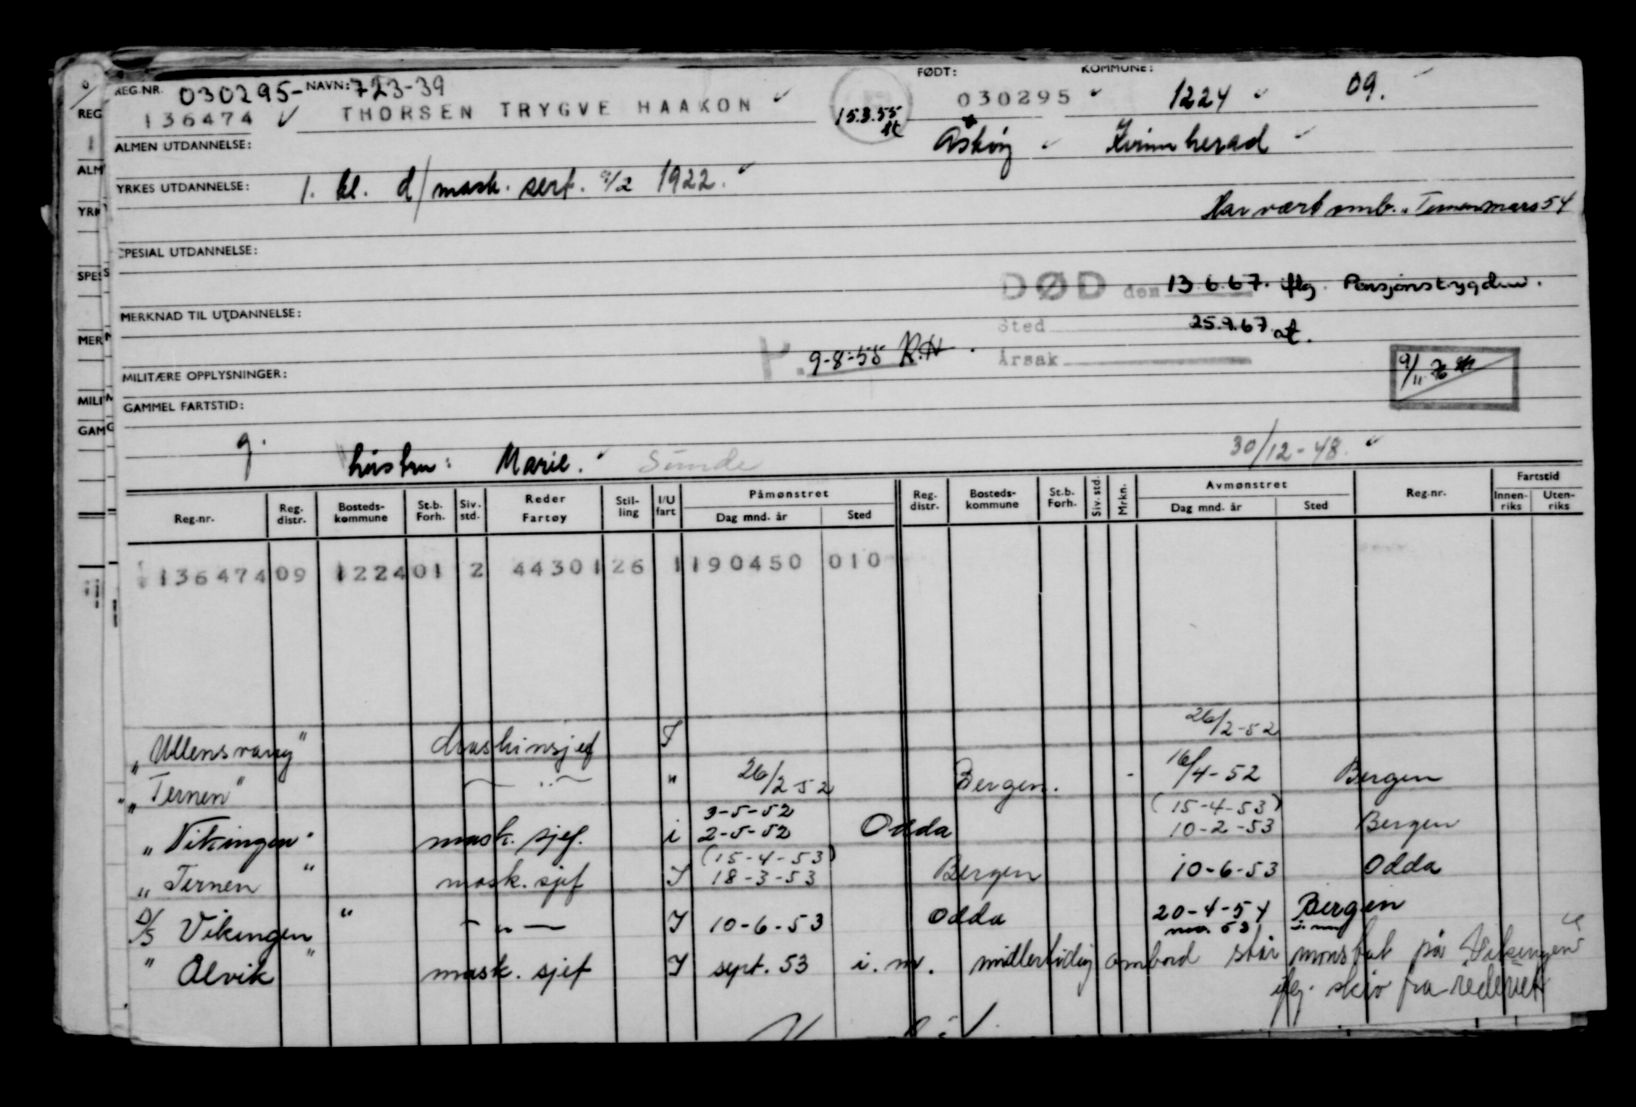 REG.NR. 030295- NAVN: 723-39 FØDT: KOMMUNE:
136474 THORSEN TRYGVE HAAKON 15.3.55 030295 1224 09.
ALMEN UTDANNELSE: Askøy Kvinnherad
YRKES UTDANNELSE: 1. kl. d/mask. sert. 9/2 1922.
Har vært omb. Ternen mars 54
SPESIAL UTDANNELSE:
DØD den 13.6.67. iflg. Pensjonstrygden.
MERKNAD TIL UTDANNELSE:
Sted 25.9.67
P. 9-8-55 R.H. Årsak
MILITÆRE OPPLYSNINGER: 9/11 76
GAMMEL FARTSTID:
g. hustru: Marie. Sunde 30/12-48.
Reg.nr. Reg. distr. Bosteds-kommune St.b. Forh. Siv. std. Reder Fartøy Stil-ling I/U fart Påmønstret Dag mnd. år Sted Reg. distr. Bosteds-kommune St.b. Forh. Siv. std. Mrkn. Avmønstret Dag mnd. år Sted Reg.nr. Fartstid Innen-riks Uten-riks
136474 09 1224 01 2 44301 26 1 190450 010
"Ullensvang" Maskinsjef I 26/2-52
"Ternen" — " — " 26/2 52 Bergen. - 16/4-52 Bergen
"Vikingen" mask. sjef. i 3-5-52 2-5-52 Odda (15-4-53) 10-2-53 Bergen
"Ternen" mask. sjef I (15-4-53) 18-3-53 Bergen 10-6-53 Odda
D/S Vikingen" — " — I 10-6-53 Odda 20-4-54 Bergen
nov. 53 i. m.
"Alvik" mask. sjef I sept. 53 i. m. midlertidig ombord står mønstret på "Vikingen"
iflg. skriv fra rederiet